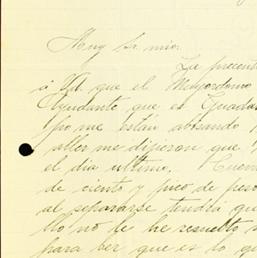 Muy Sr. mio:
La presente
á Vd. que el Mayordomo
Ayudante que es Guada
pio me están abisando
aller me digeron que
el dia ultimo,
de ciento y pico de peso
al separarse tendrá que
llo no le he resuelto
para ber que es lo que